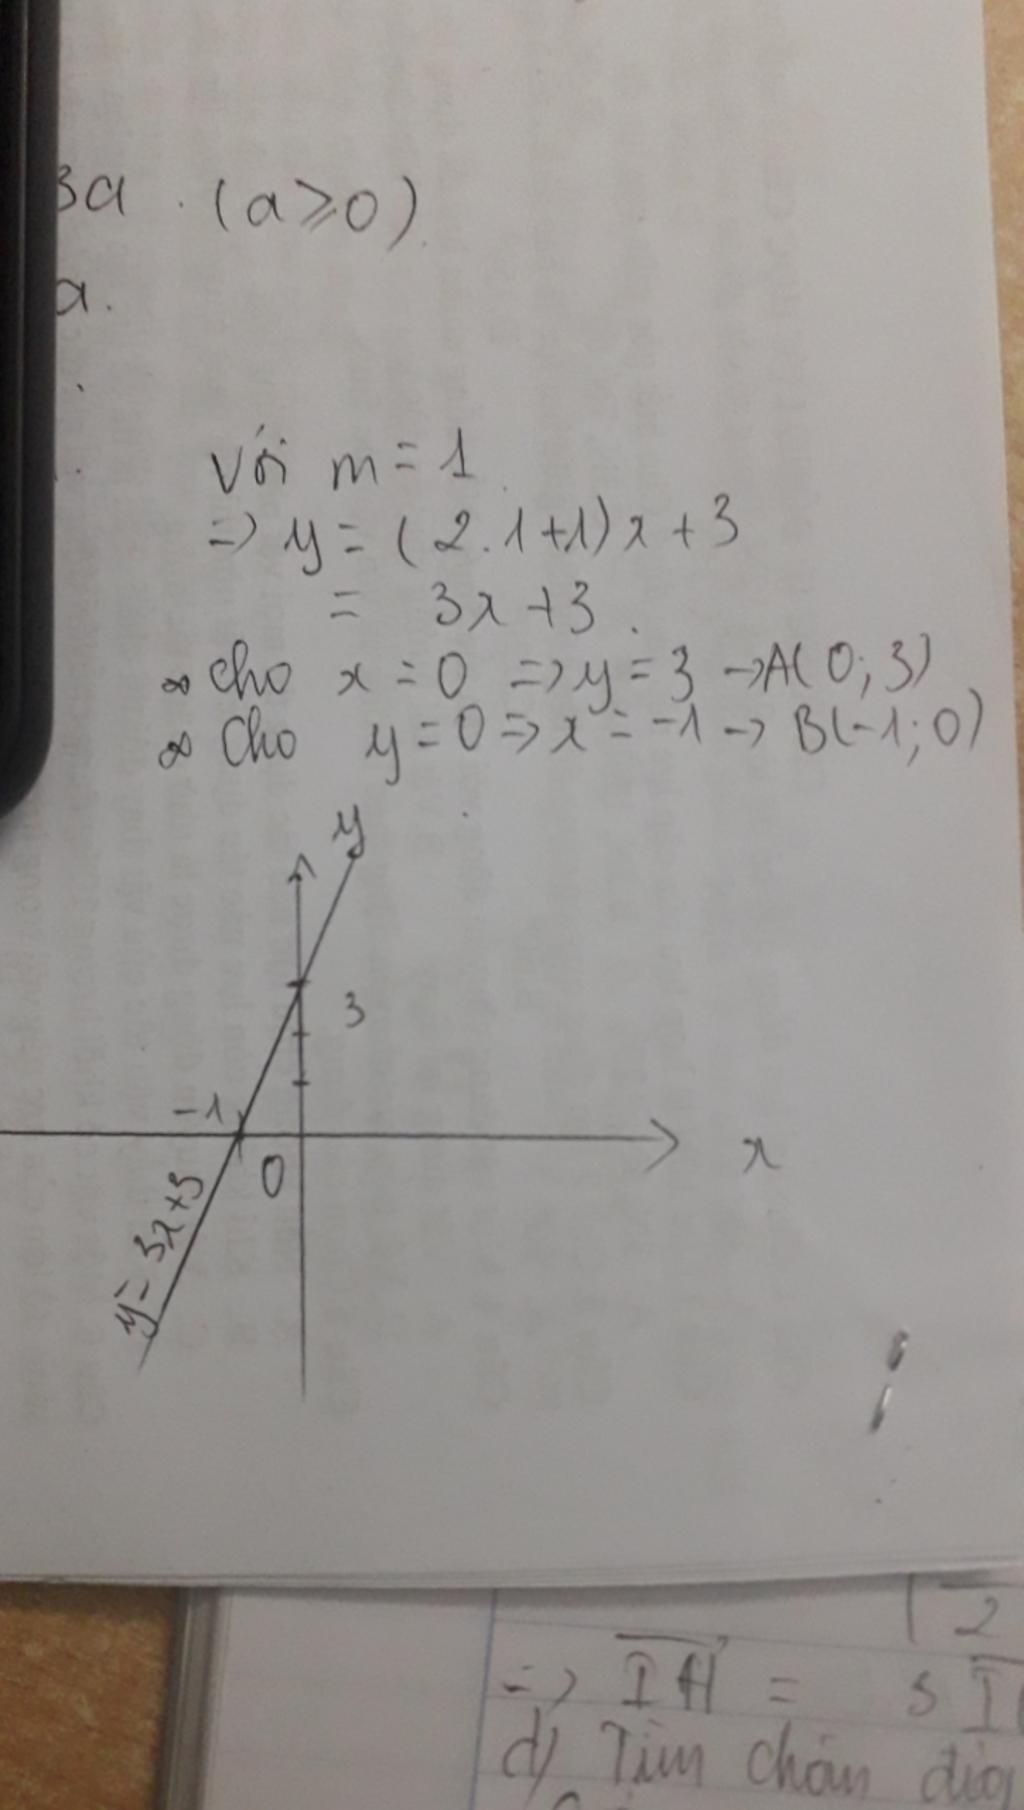 3a (a⩾0)
a.
Với m = 1
=> y = (2.1+1)x + 3
= 3x + 3.
∞ Cho x = 0 => y = 3 → A(0; 3)
∞ Cho y = 0 => x = -1 → B(-1; 0)
y
3
-1
0
x
y = 3x+3
2
=> IH = 5 I
d) Tìm